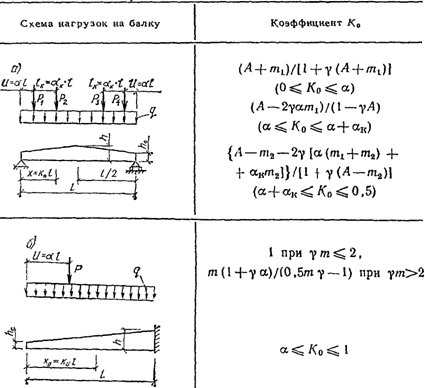 Схема нагрузок на балку
Коэффициент K₀
а)
U=αl lₖ=αₖ·l lₖ=αₖ·l U=αl
P₁ P₂ P₃ P₄
q
h
x=κ₀l l/2
l
(A+m₁)/[1+γ(A+m₁)]
(0⩽K₀⩽α)
(A−2γαm₁)/(1−γA)
(α⩽K₀⩽α+αₖ)
{A−m₂−2γ[α(m₁+m₂)+
+αₖm₂]}/[1+γ(A−m₂)]
(α+αₖ⩽K₀⩽0,5)
б)
U=αl
P
q
h
l
1 при γm⩽2,
m(1+γα)/(0,5mγ−1) при γm>2
α⩽K₀⩽1